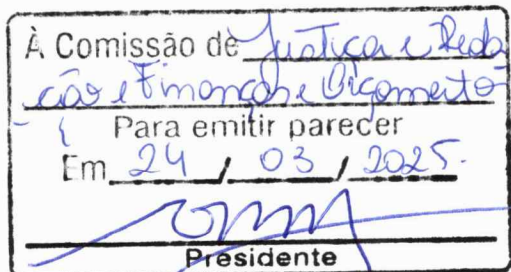 À Comissão de Justiça e Reda
ção e Finanças e Orçamento
Para emitir parecer
Em 24 / 03 / 2025.
Presidente